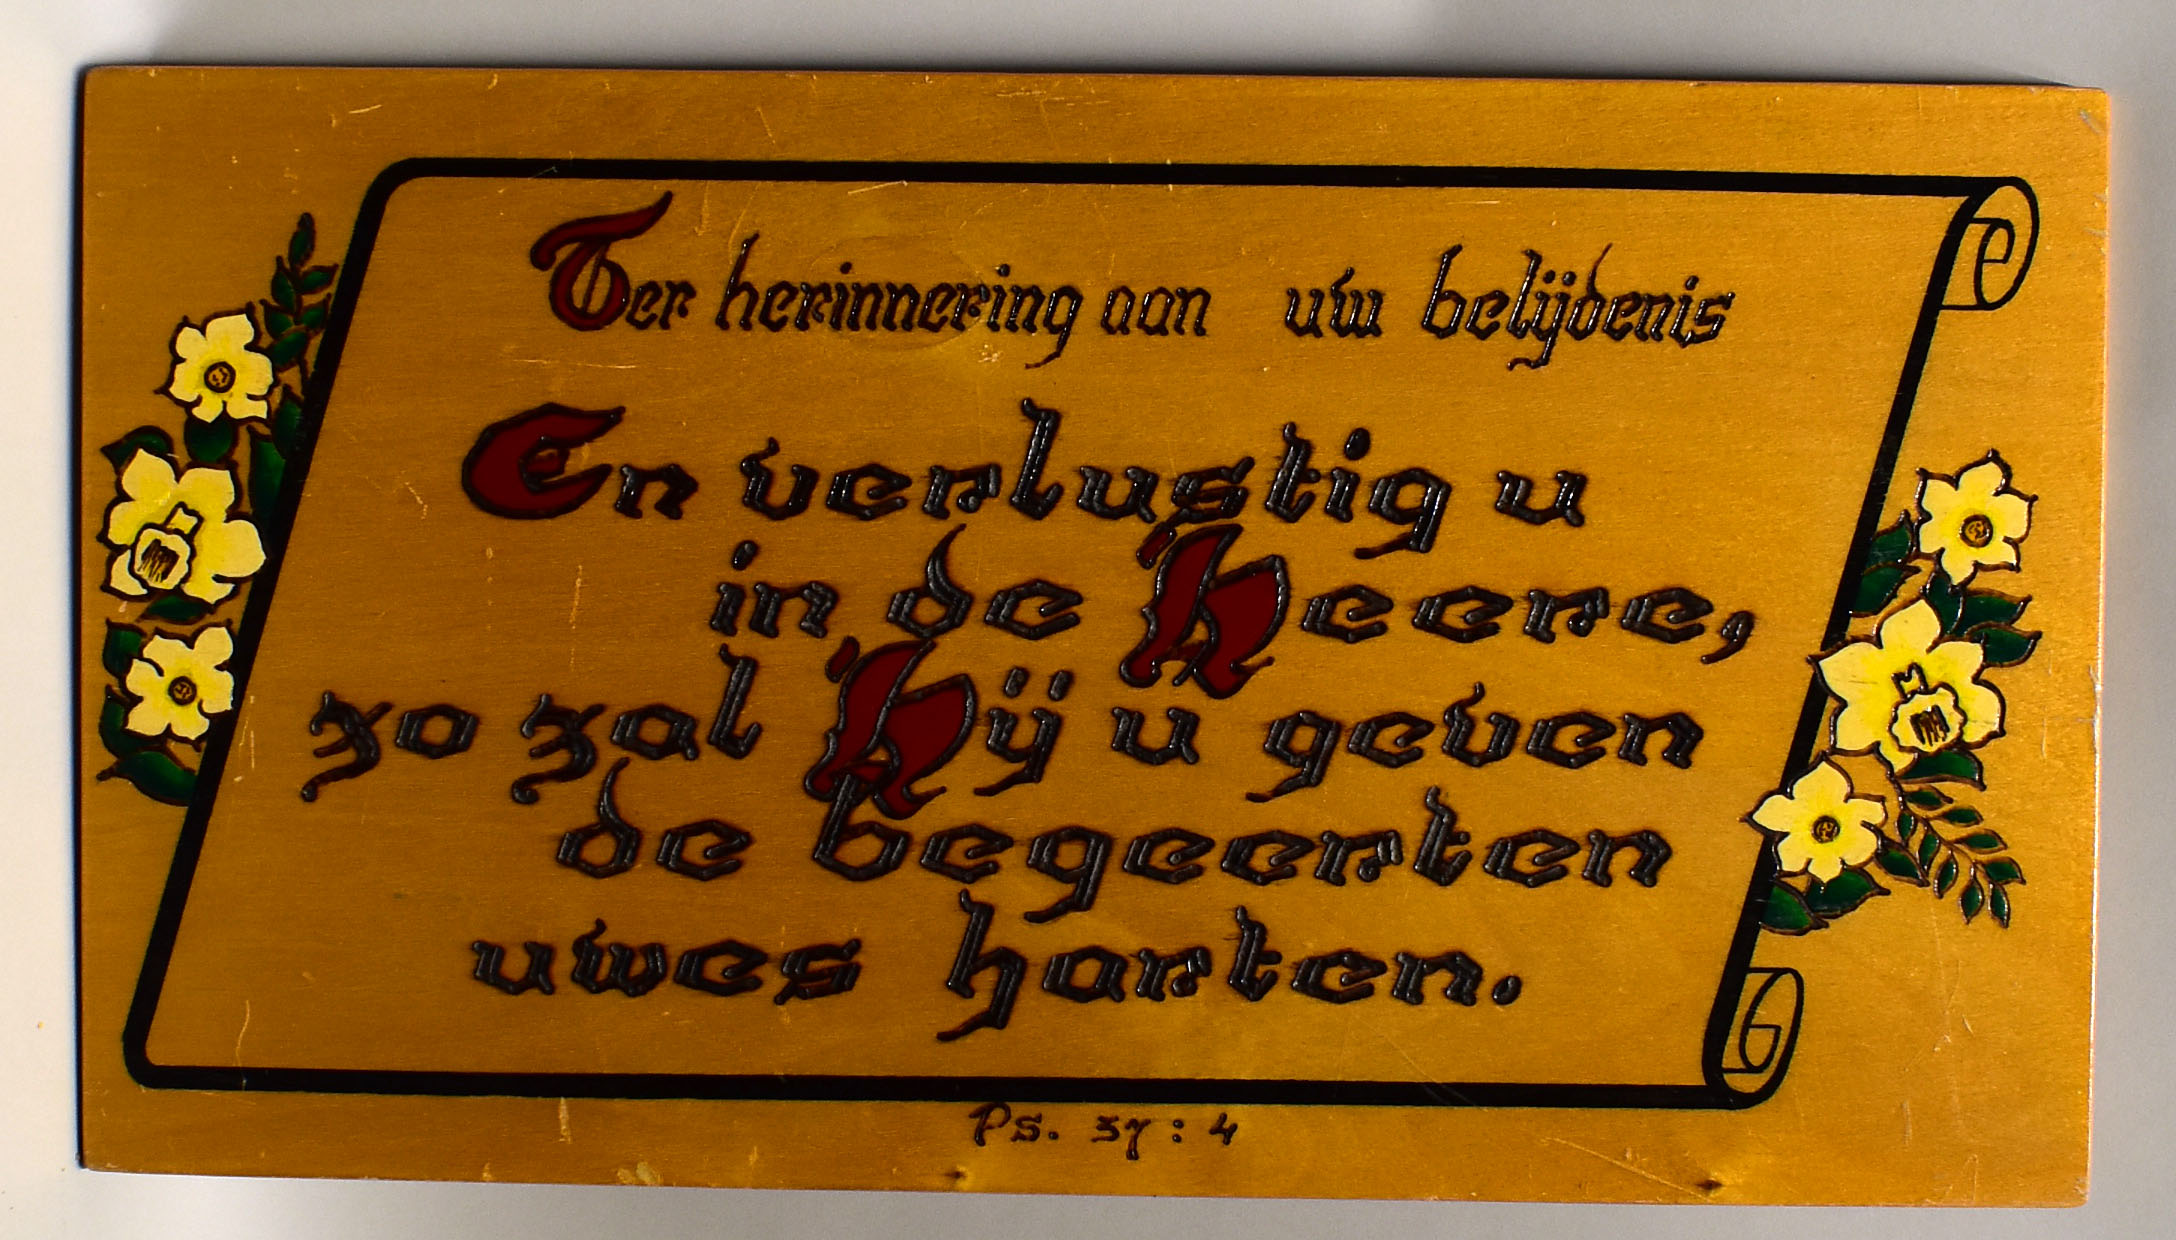 Ter herinnering aan uw belijdenis
En verlustig u
in de Heere,
zo zal Hij u geven
de begeerten
uwes harten.
Ps. 37 : 4